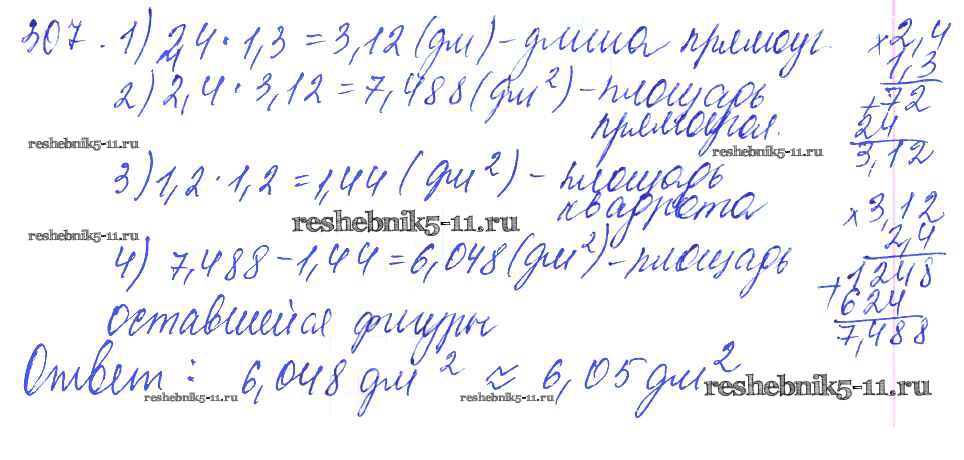 307. 1) 2,4 · 1,3 = 3,12 (дм) - длина прямоуг.
2) 2,4 · 3,12 = 7,488 (дм²) - площадь
прямоугол.
reshebnik5-11.ru
reshebnik5-11.ru
3) 1,2 · 1,2 = 1,44 (дм²) - площадь
квадрата
reshebnik5-11.ru
reshebnik5-11.ru
4) 7,488 - 1,44 = 6,048 (дм²) - площадь
оставшейся фигуры
Ответ: 6,048 дм² ≈ 6,05 дм²
reshebnik5-11.ru
reshebnik5-11.ru
reshebnik5-11.ru
× 2,4
1,3
+ 72
24
3,12
× 3,12
2,4
+ 1248
624
7,488